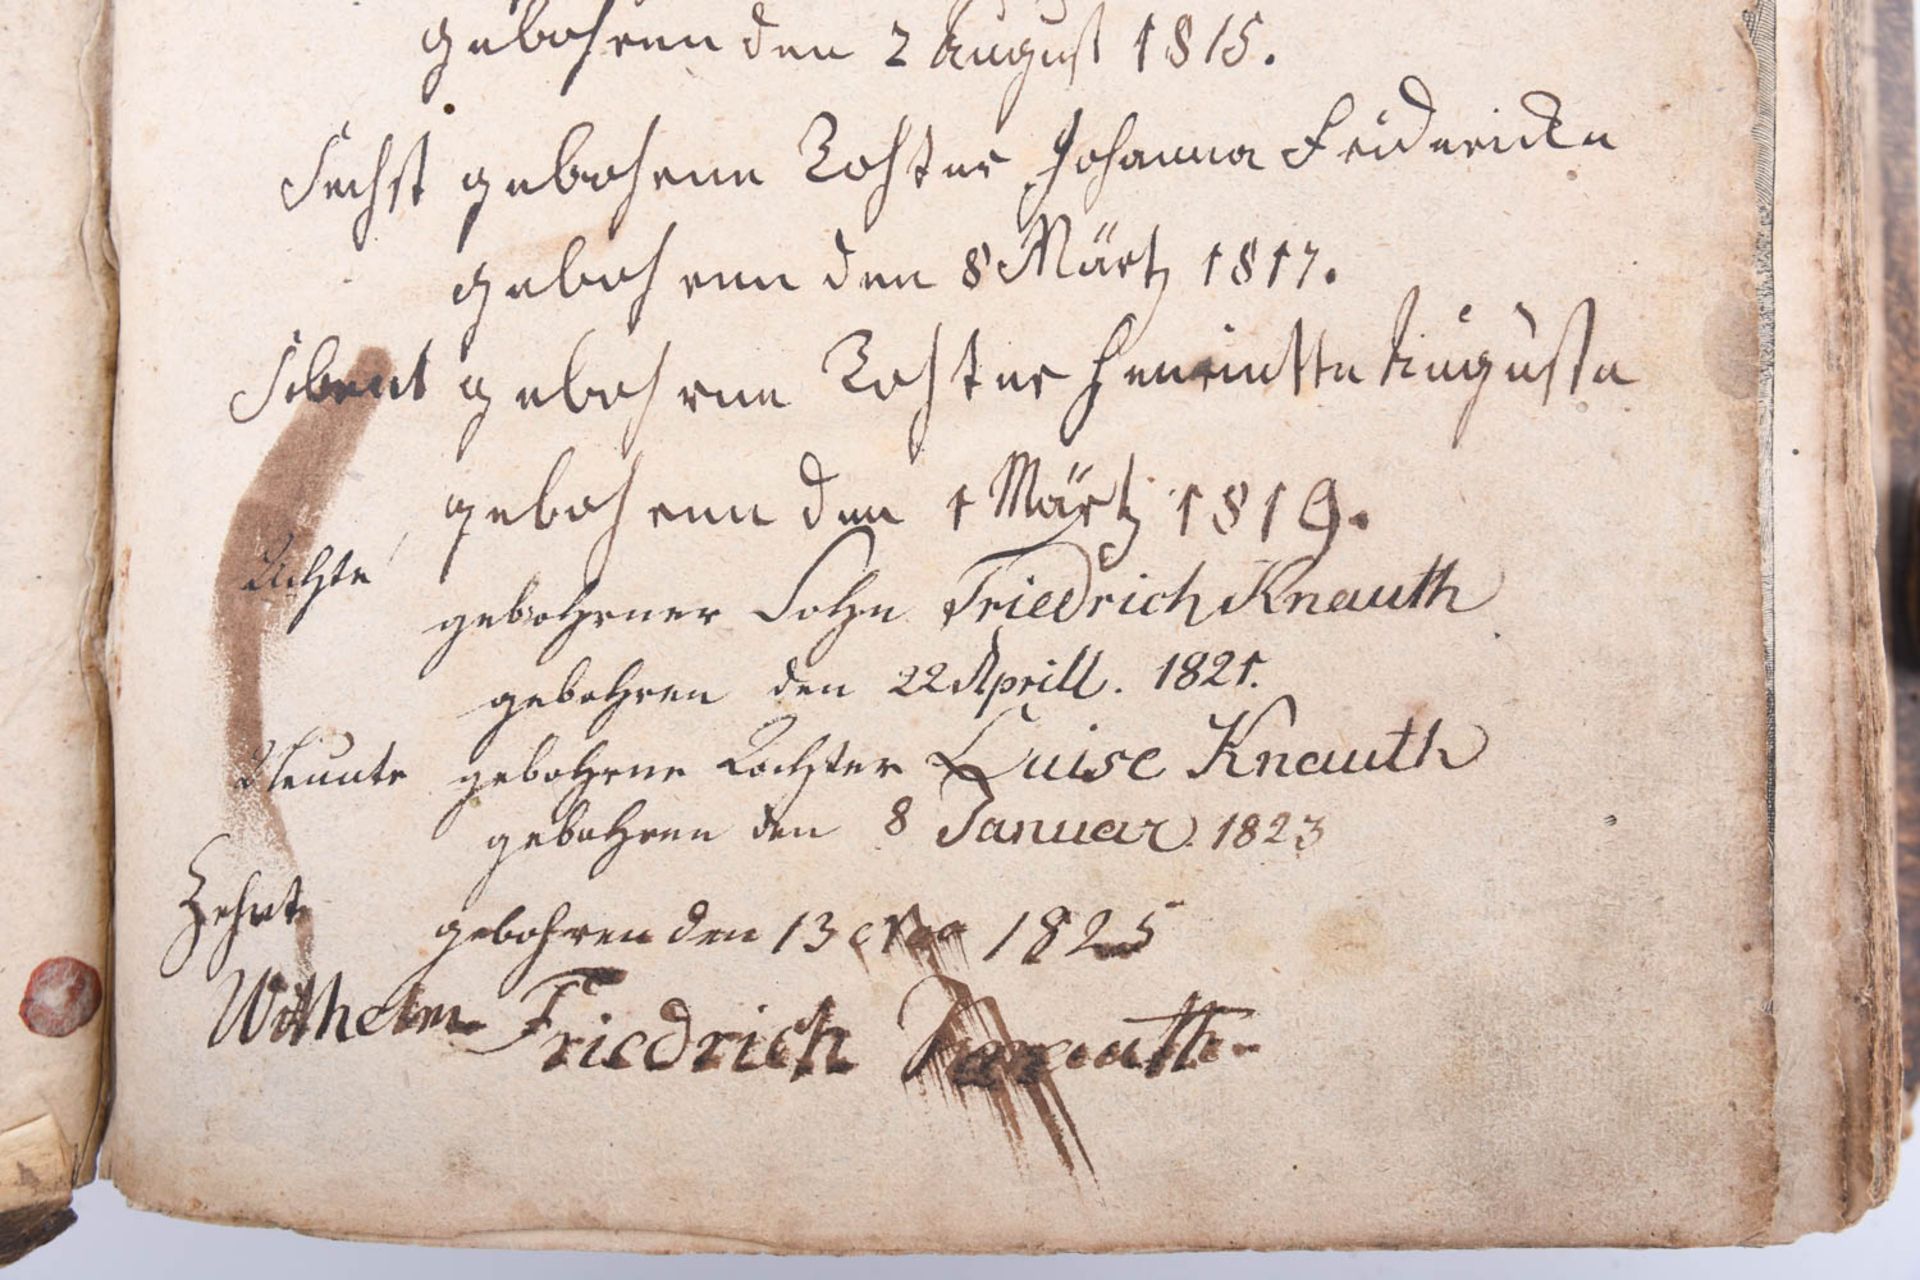 gebohren den 2 August 1815.
Sechst gebohrne Tohter Johanna Fridericka
gebohrnn den 8 Märtz 1817.
Sibent gebohrne Tohter Henriette Auguste
gebohrnn den 1 Märtz 1819.
Achte gebohrner Sohn Friedrich Knauth
gebohren den 22 Aprill. 1821.
Neunte gebohrne Tochter Luise Knauth
gebohren den 8 Januar. 1823
Zehnt gebohren den 13 1825
Wilhelm Friedrich Knauth